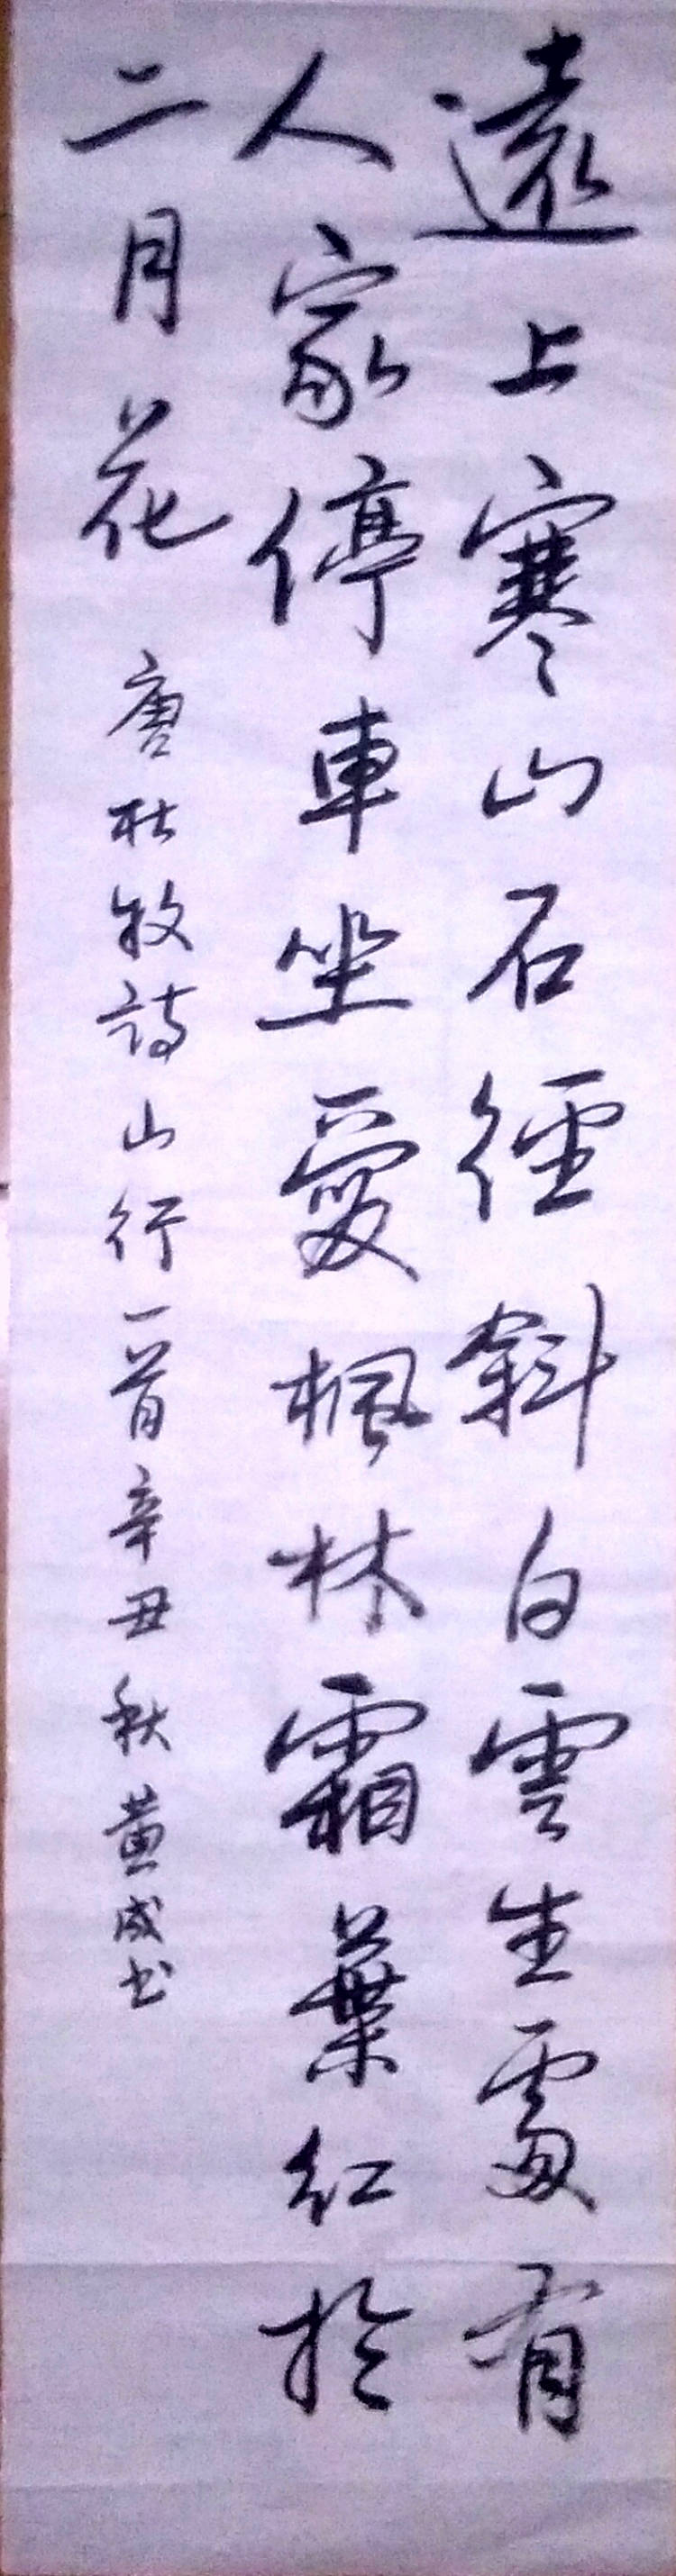 遠上寒山石徑斜白雲生處有
人家停車坐愛楓林霜葉紅於
二月花
唐杜牧詩山行一首辛丑秋黄成书